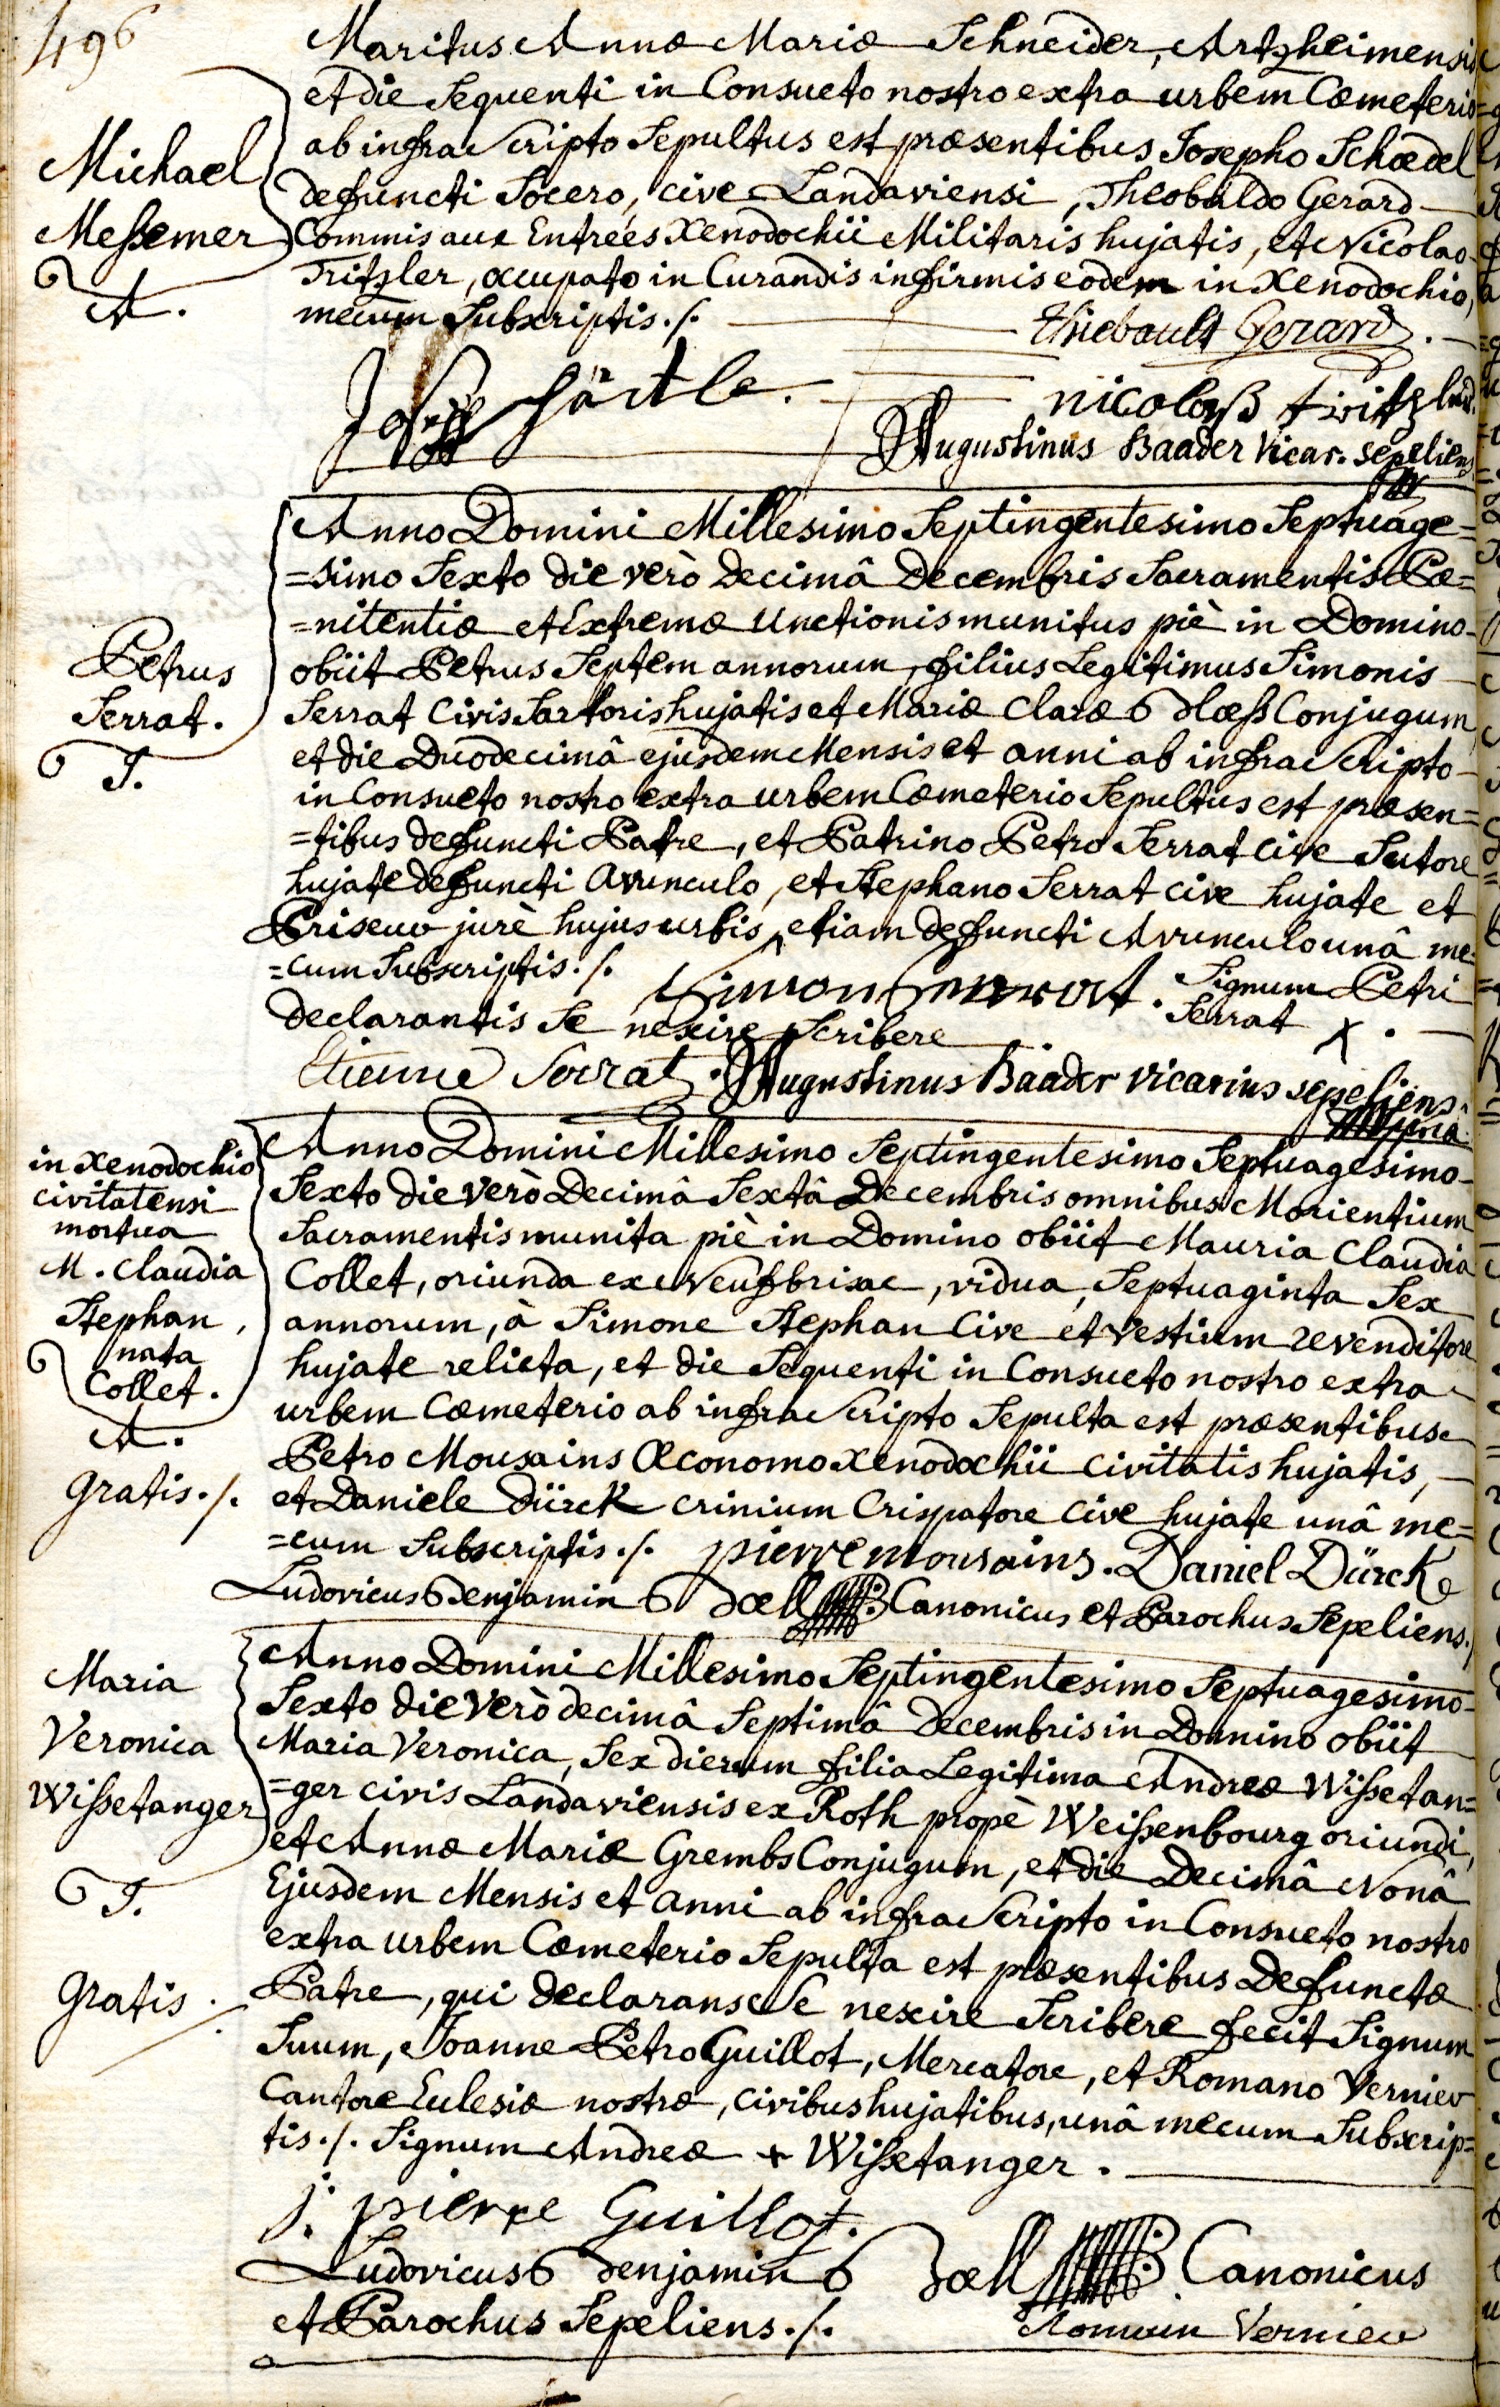 496
Maritus Annæ Mariæ Schneider, Artzheimensis
et die Sequenti in Consueto nostro extra urbem Cœmeterio
ab infra Scripto Sepultus est præsentibus Josepho Schœdel
Michael
Meßemer
A.
defuncti Socero, cive Landaviensi, Theobaldo Gerard
Commis aux Entrées Xenodochii Militaris hujatis, et Nicolao
Tritzler, occupato in Curandis infirmis eodem in Xenodochio,
mecum Subscriptis ./.
Thiebault Gerard.
Josepf
nicolaß tritzler
Augustinus Baader Vicar. sepeliens
Anno Domini Millesimo Septingentesimo Septuage=
=simo Sexto die verò Decimâ Decembris Sacramentis Pœ=
=nitentiæ et Extremæ Unctionis munitus piè in Domino
Petrus
Serrat.
T.
obiit Petrus Septem annorum, filius Legitimus Simonis
Serrat Civis Sartoris hujatis et Mariæ Claræ Blæß Conjugum,
et die Duodecimâ ejusdem Mensis et anni ab infra Scripto
in Consueto nostro extra urbem Cœmeterio Sepultus est præsen=
=tibus defuncti Patre, et Patrino Petro Serrat Cive Sutore
hujate defuncti Avunculo, et Stephano Serrat cive hujate et
jurè hujus urbis, etiam defuncti Avunculo unâ me=
=cum Subscriptis ./.
Simon Serrat.
Signum Petri
Serrat x.
declarantis Se nescire Scribere
Etienne Serrat.
Augustinus Baader vicarius sepeliens
in Xenodochio
civitatensi
mortua
M. Claudia
Stephan,
nata
Collet.
A.
Gratis ./.
Anno Domini Millesimo Septingentesimo Septuagesimo
Sexto die verò Decimâ Sextâ Decembris omnibus Morientium
Sacramentis munita piè in Domino obiit Mauria Claudia
Collet, oriunda ex Neufbrisac, vidua, Septuaginta Sex
annorum, à Simone Stephan Cive et Vestium revenditore
hujate relicta, et die Sequenti in Consueto nostro extra
urbem Cœmeterio ab infra Scripto Sepulta est præsentibus
Petro Mousains Œconomo Xenodochii Civitatis hujatis,
et Daniele Dürck crinium Crispatore Cive hujate unâ me=
=cum Subscriptis ./.
pierre mousains.
Daniel Dürck
Ludovicus Benjamin Bœll Canonicus et Parochus Sepeliens.
Maria
Veronica
Wißetanger
T.
Gratis ./.
Anno Domini Millesimo Septingentesimo Septuagesimo
Sexto die Verò decimâ Septimâ Decembris in Domino obiit
Maria Veronica, Sex dierum filia Legitima Andreæ Wißetan=
=ger civis Landaviensis ex Roth propè Weißenbourg oriundi,
et Annæ Mariæ Grembs Conjugum, et die Decimâ Nonâ
Ejusdem Mensis et anni ab infra Scripto in Consueto nostro
extra urbem Cœmeterio Sepulta est præsentibus Defunctæ
Patre, qui declarans Se nescire Scribere fecit Signum
Suum, Joanne Petro Guillot, Mercatore, et Romano Vernier
Cantore Eclesiæ nostræ, civibus hujatibus, unâ mecum Subscrip=
tis ./. Signum Andreæ + Wißetanger.
j. pierre Guillot.
Ludovicus Benjamin Bœll Canonicus
et Parochus Sepeliens ./.
Romain Vernier